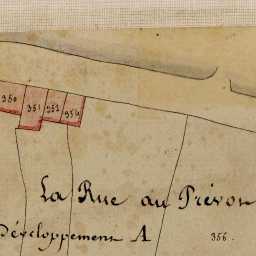 350 351 352
La Rue au Prévost
Développement A
356.